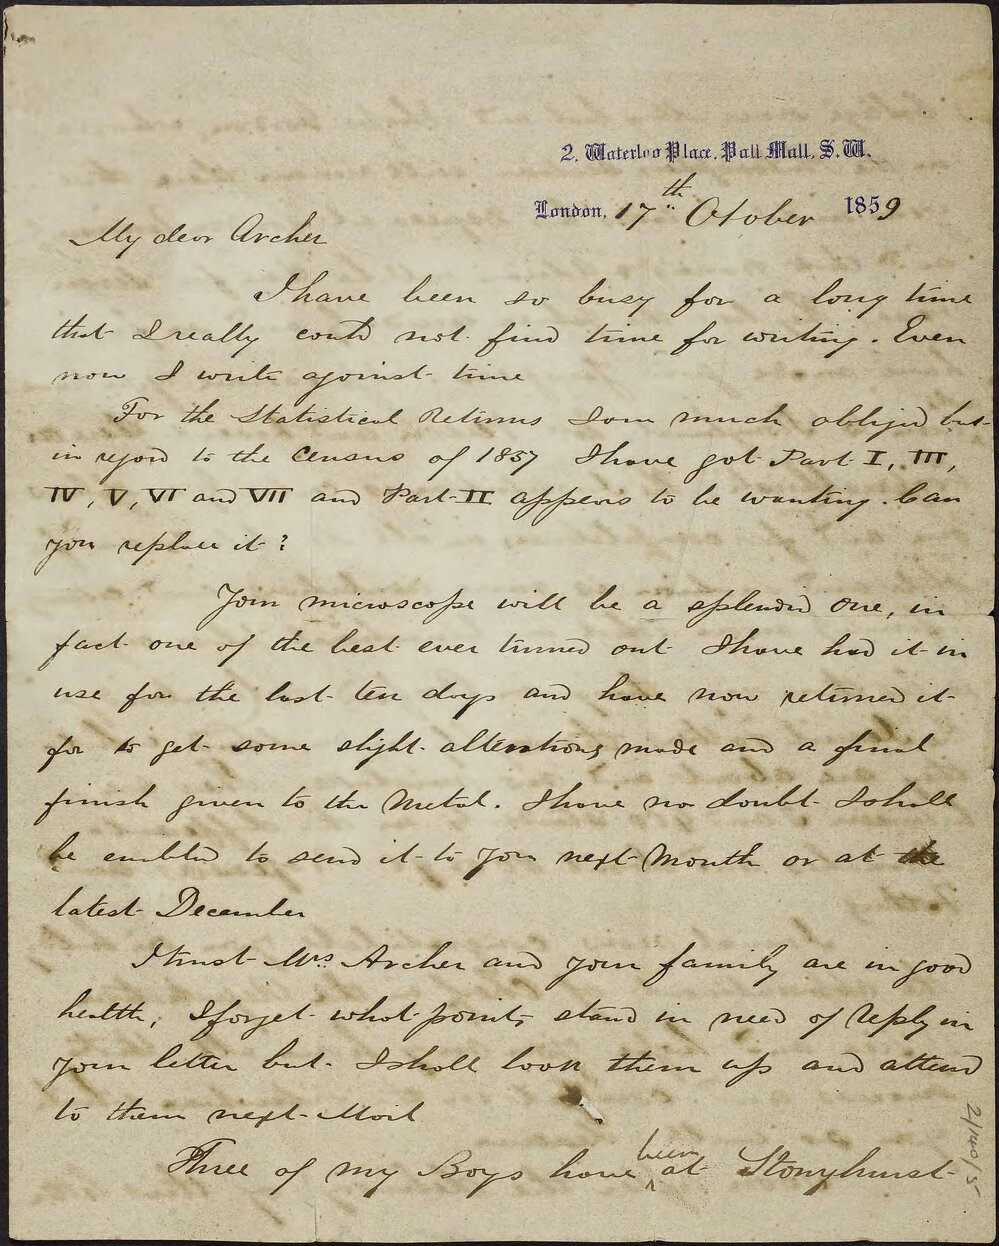 2, Waterloo Place, Pall Mall, S.W.
London, 17th October 1859
My dear Archer
I have been so busy for a long time
that I really could not find time for writing. Even
now I write against time
For the Statistical Returns I am much obliged but
in regard to the Census of 1857 I have got Part I, III,
IV, V, VI and VII and Part II appears to be wanting. Can
you replace it?
Your microscope will be a splendid one, in
fact one of the best ever turned out I have had it in
use for the last ten days and have now returned it
for to get some slight alterations made and a final
finish given to the Metal. I have no doubt I shall
be enabled to send it to you next Month or at the
latest December
I trust Mrs. Archer and your family are in good
health, I forget what points stand in need of reply in
your letter but I shall look them up and attend
to them next Mail
Three of my Boys have been at Stonyhurst